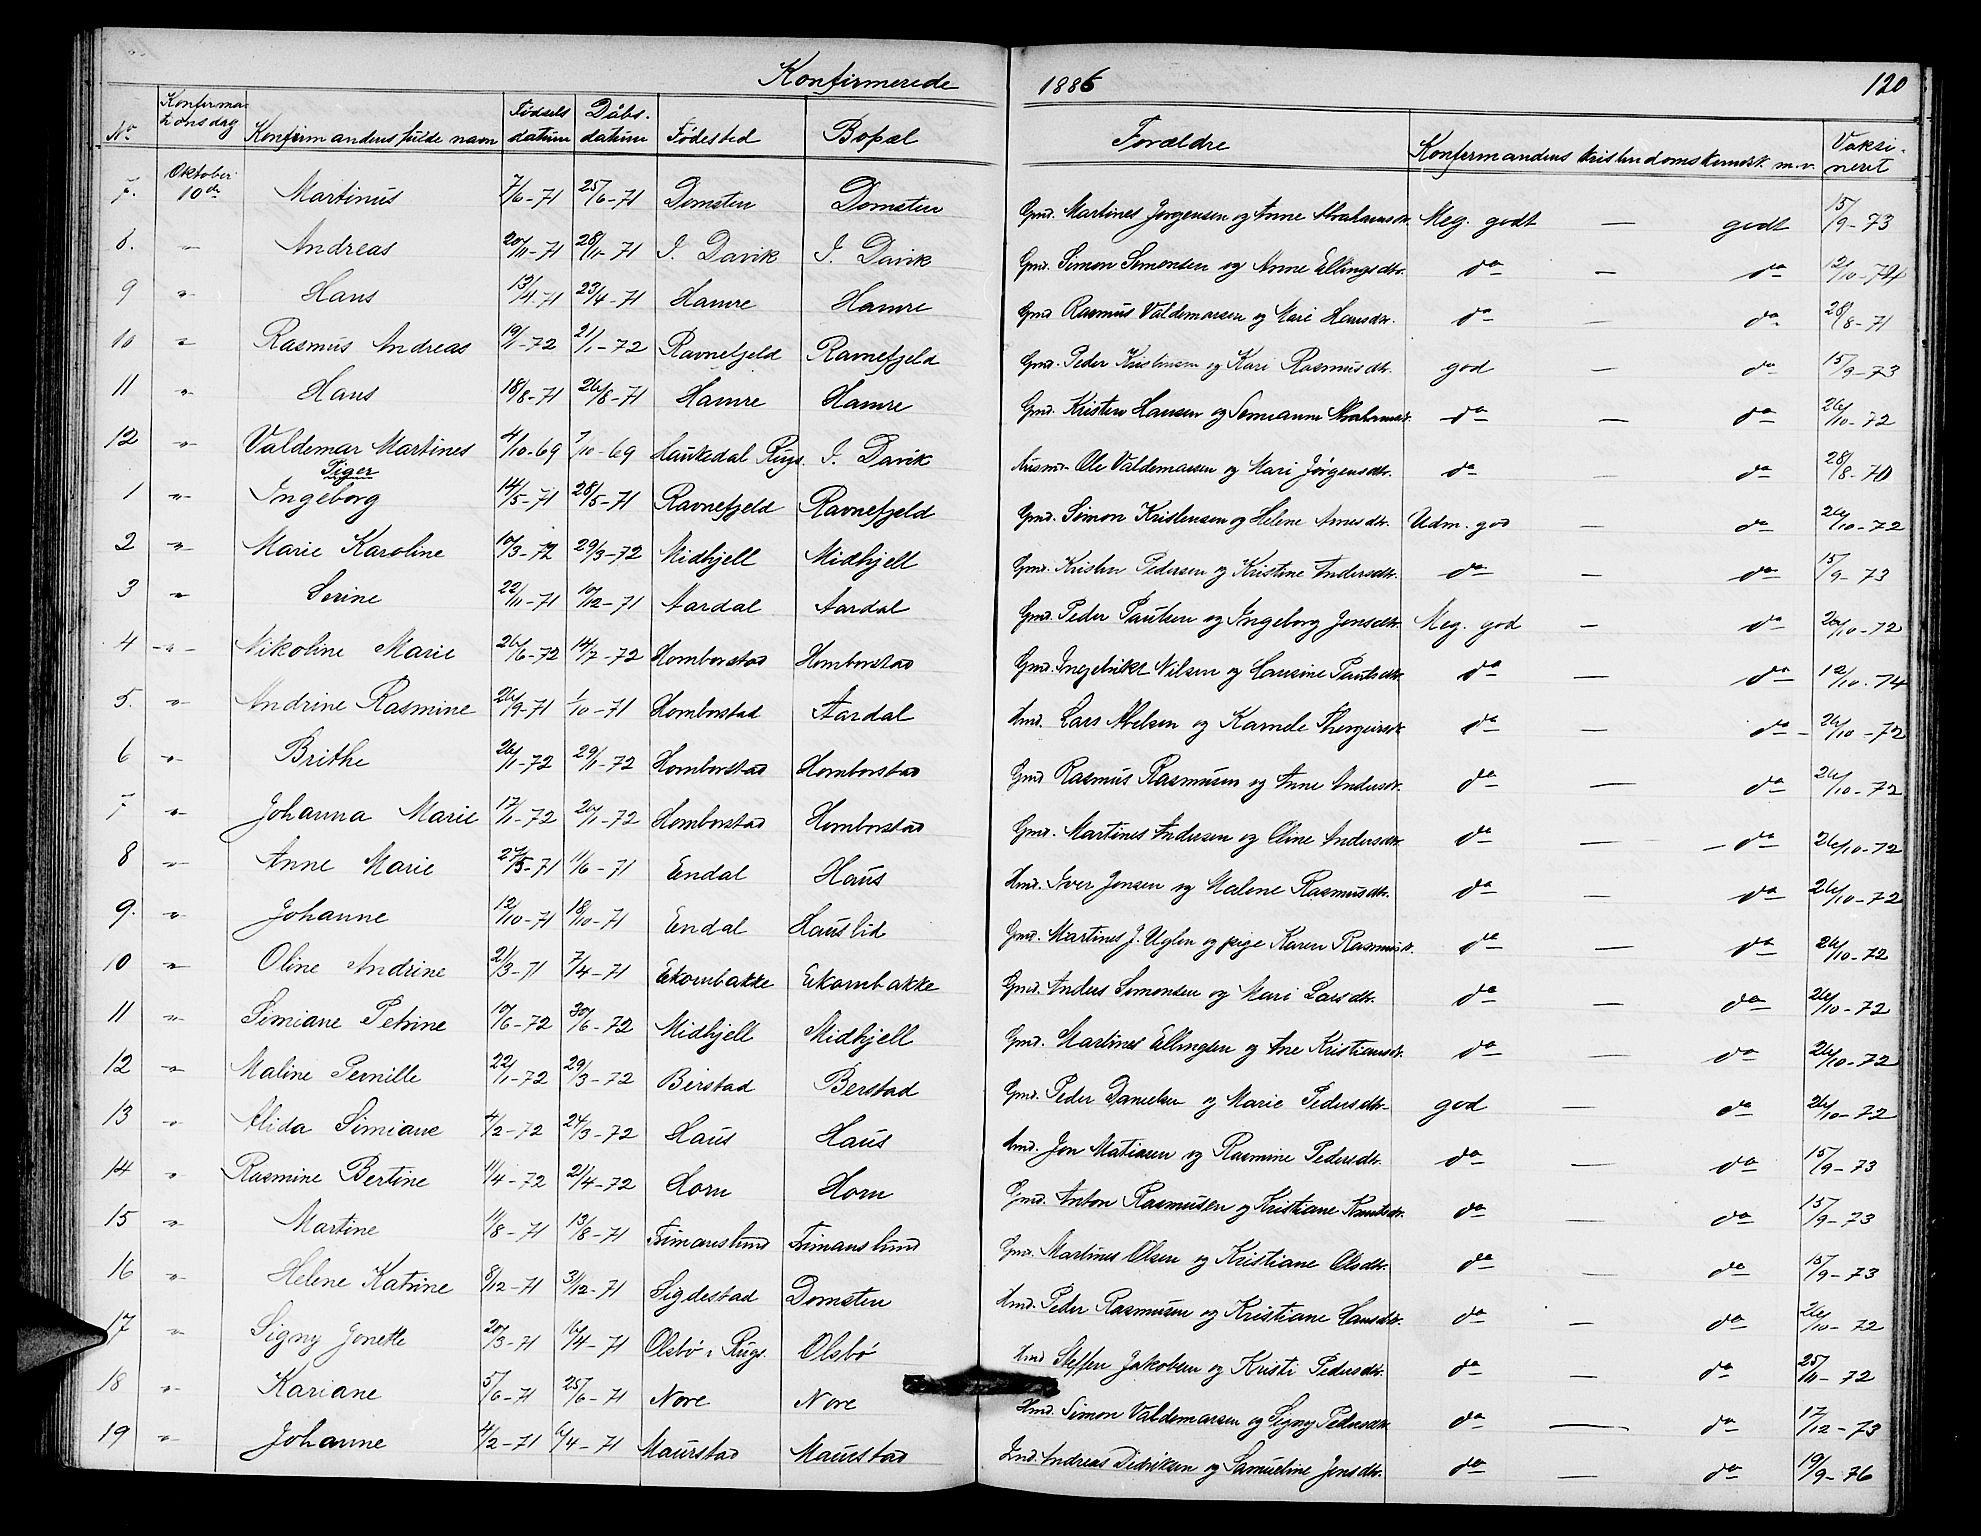 Konfirmerede 1886 120
No Konfirmationsdag Konfirmandens fulde navn Fødselsdatum Dåbsdatum Fødested Bopæl Forældre Konfirmandens kristendomskunnsk. m.v. Vaksineret
7. Oktober 10de Martinus 7/6-71 25/6-71 Domsten Domsten Gmd. Martines Jørgensen og Anne Abrahamsdr. Meg. godt — godt 15/9-73
8. " Andreas 20/11-71 28/11-71 I. Davik I. Davik Gmd. Simon Simonsen og Anne Ellingsdtr. do — do 12/10-74
9 " Hans 13/4-71 23/4-71 Hamre Hamre Gmd Rasmus Valdemarsen og Mari Hansdr. do — do 28/8-71
10 " Rasmus Andreas 19/1-72 21/1-72 Ravnefjeld Ravnefjeld Gmd. Peder Kristensen og Kari Rasmusdtr. god — do 15/9-73
11 " Hans 18/8-71 26/8-71 Hamre Hamre Gmd. Kristen Hansen og Simianne Abrahamsdr. do — do 26/10-72
12 " Valdemar Martines 4/10-69 7/10-69 Haukedal Rugs. I. Davik Husmd. Ole Valdemarsen og Mari Jørgensdtr. do — do 28/8-70
Piger
1 " Ingeborg 14/5-71 28/5-71 Ravnefjeld Ravnefjeld Gmd. Simon Kristensen og Helene Arnesdtr. Udm. god — do 26/10-72
2 " Marie Karoline 10/3-72 29/3-72 Midhjell Midhjell Gmd. Kristen Pedersen og Kristine Andersdtr. do — do 15/9-73
3 " Serine 22/11-71 10/12-71 Aardal Aardal Gmd. Peder Paulsen og Ingeborg Jensdtr. Meg. god — do 26/10-72
4 " Nikoline Marie 26/6-72 14/7-72 Homborstad Homborstad Gmd. Ingebrikt Nilsen og Hansine Paulsdtr. do — do 12/10-74
5. " Andrine Rasmine 26/9-71 1/10-71 Homborstad Aardal Hmd. Lars Abelsen og Karnele do — do 26/10-72
6 " Brithe 26/1-72 29/1-72 Homborstad Homborstad Gmd Rasmus Rasmusen og Anne Andersdr. do — do 26/10-72
7 " Johanna Marie 17/1-72 20/1-72 Homborstad Homborstad Gmd. Martines Andersen og Oline Andersdtr. do — do 26/10-72
8 " Anne Marie 27/5-71 11/6-71 Endal Haus Hmd. Iver Jensen og Malene Rasmusdtr. do — do 26/10-72
9. " Johanne 12/10-71 18/10-71 Endal Hauslid Gmd. Martines J. Uglen og pige Karen Rasmusdr. do — do 26/10-72
10 " Oline Andrine 21/3-71 7/4-71 Ekornbakke Ekornbakke Gmd. Anders Simonsen og Mari Larsdtr. do — do 26/10-72
11 " Simiane Petrine 10/6-72 30/6-72 Midhjell Midhjell Gmd. Martines Ellingsen og Ane Kristiansdr. do — do 26/10-72
12 " Maline Pernille 22/1-72 29/3-72 Berstad Berstad Gmd. Peder Danielsen og Marie Pedersdtr god — do 26/10-72
13 " Alida Simiane 4/2-72 24/3-72 Haus Haus Hmd. Jon Matiasen og Rasmine Pedersdtr. do — do 15/9-73
14 " Rasmine Bertine 11/4-72 21/4-72 Horn Horn Gmd. Anton Rasmusen og Kristiane Knutsdtr. do — do 15/9-73
15 " Martine 11/8-71 13/8-71 Frimanslund Frimanslund Gmd. Martines Olsen og Kristiane Olsdtr. do — do 15/9-73
16 " Helene Katrine 8/12-71 31/12-71 Sigdestad Domsten Hmd. Peder Rasmusen og Kristiane Hansdtr. do — do 26/10-72
17 " Signy Jonette 20/3-71 10/4-71 Olsbø i Rugs. Olsbø Hmd Steffen Jakobsen og Kristi Pedersdtr. do — do 25/11-72
18 " Kariane 5/6-71 25/6-71 Nore Nore Hmd. Simon Valdemarsen og Signy Pedersdtr do — do 17/12-73
19 " Johanne 4/2-71 6/4-71 Maurstad Maurstad Ind. Andreas Didriksen og Samueline Jensdtr. do — do 19/9-76